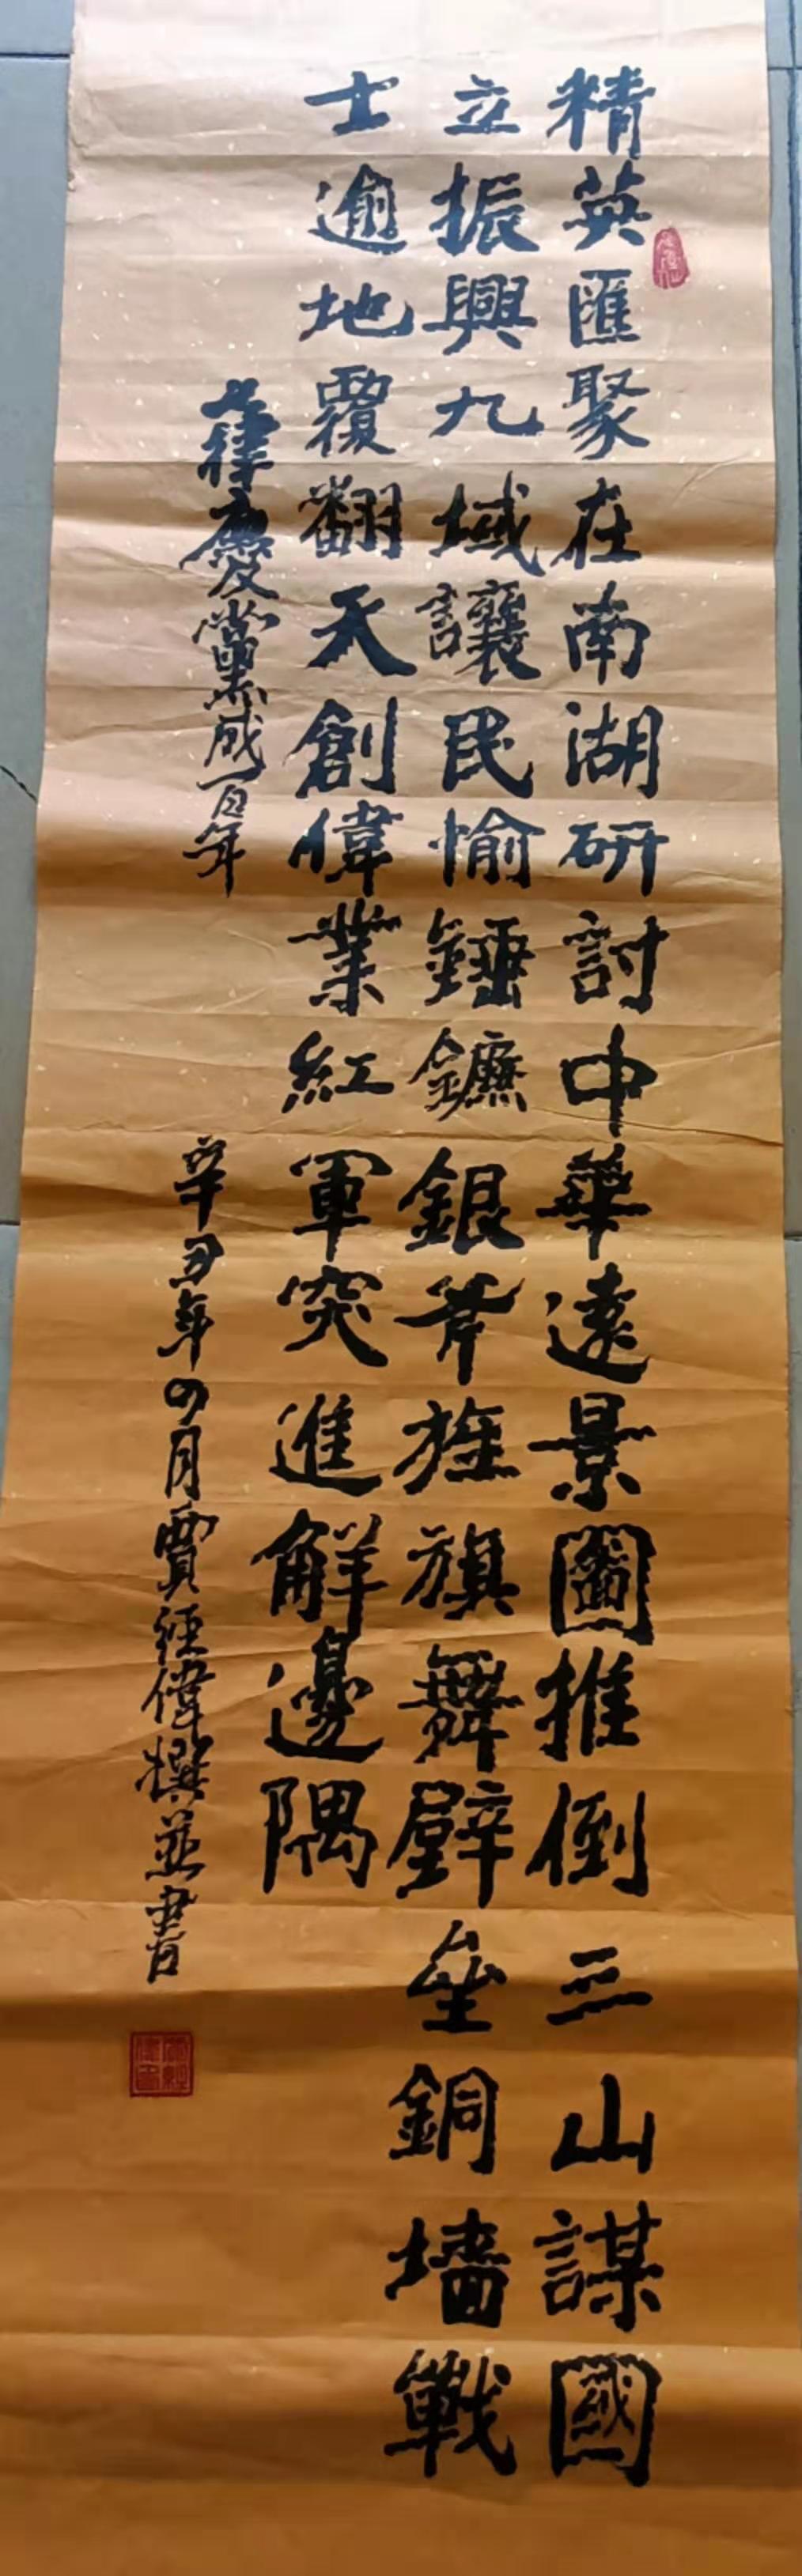 精英匯聚在南湖研討中華遠景圖推倒三山謀國
立振興九域讓民愉錘鐮銀斧旌旗舞壁壘銅墻戰
士逾地覆翻天創偉業紅軍突進解邊隅
七律慶黨成百年
辛丑年四月賈經偉撰並書